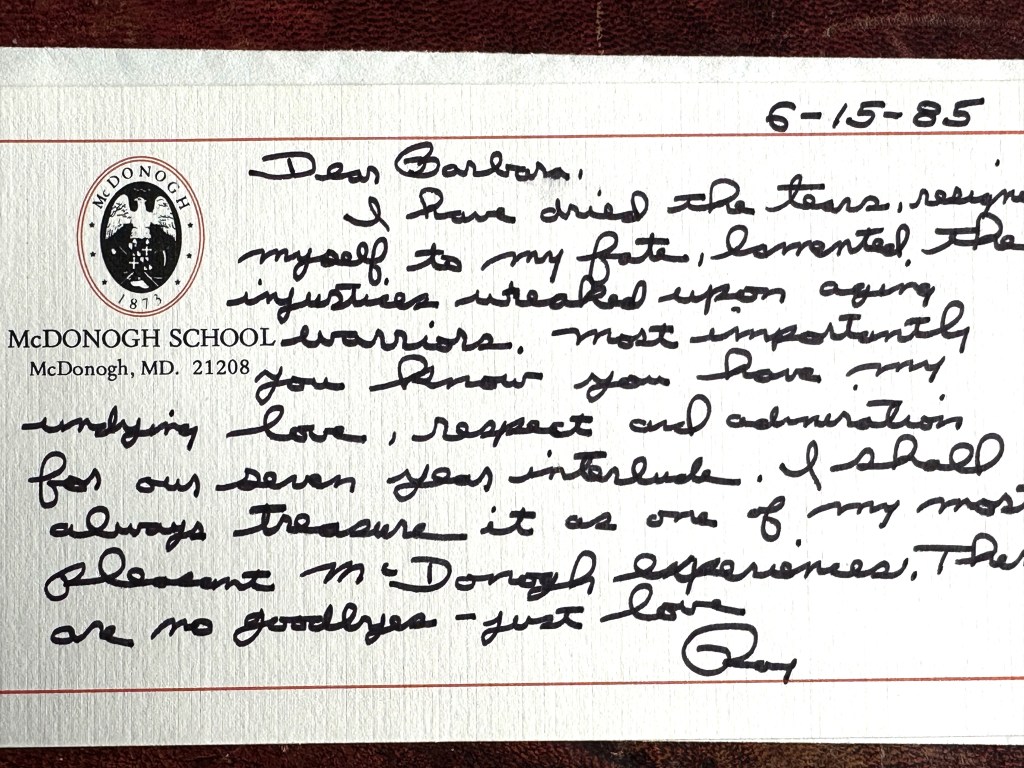 6-15-85
McDONOGH
1873
McDONOGH SCHOOL
McDonogh, MD. 21208
Dear Barbara,
I have dried the tears, resigne
myself to my fate, lamented the
injustices wreaked upon aging
warriors. Most importantly
you know you have my
undying love, respect and admiration
for our seven year interlude. I shall
always treasure it as one of my most
pleasant McDonogh experiences. Ther
are no goodbyes - just love
Roy